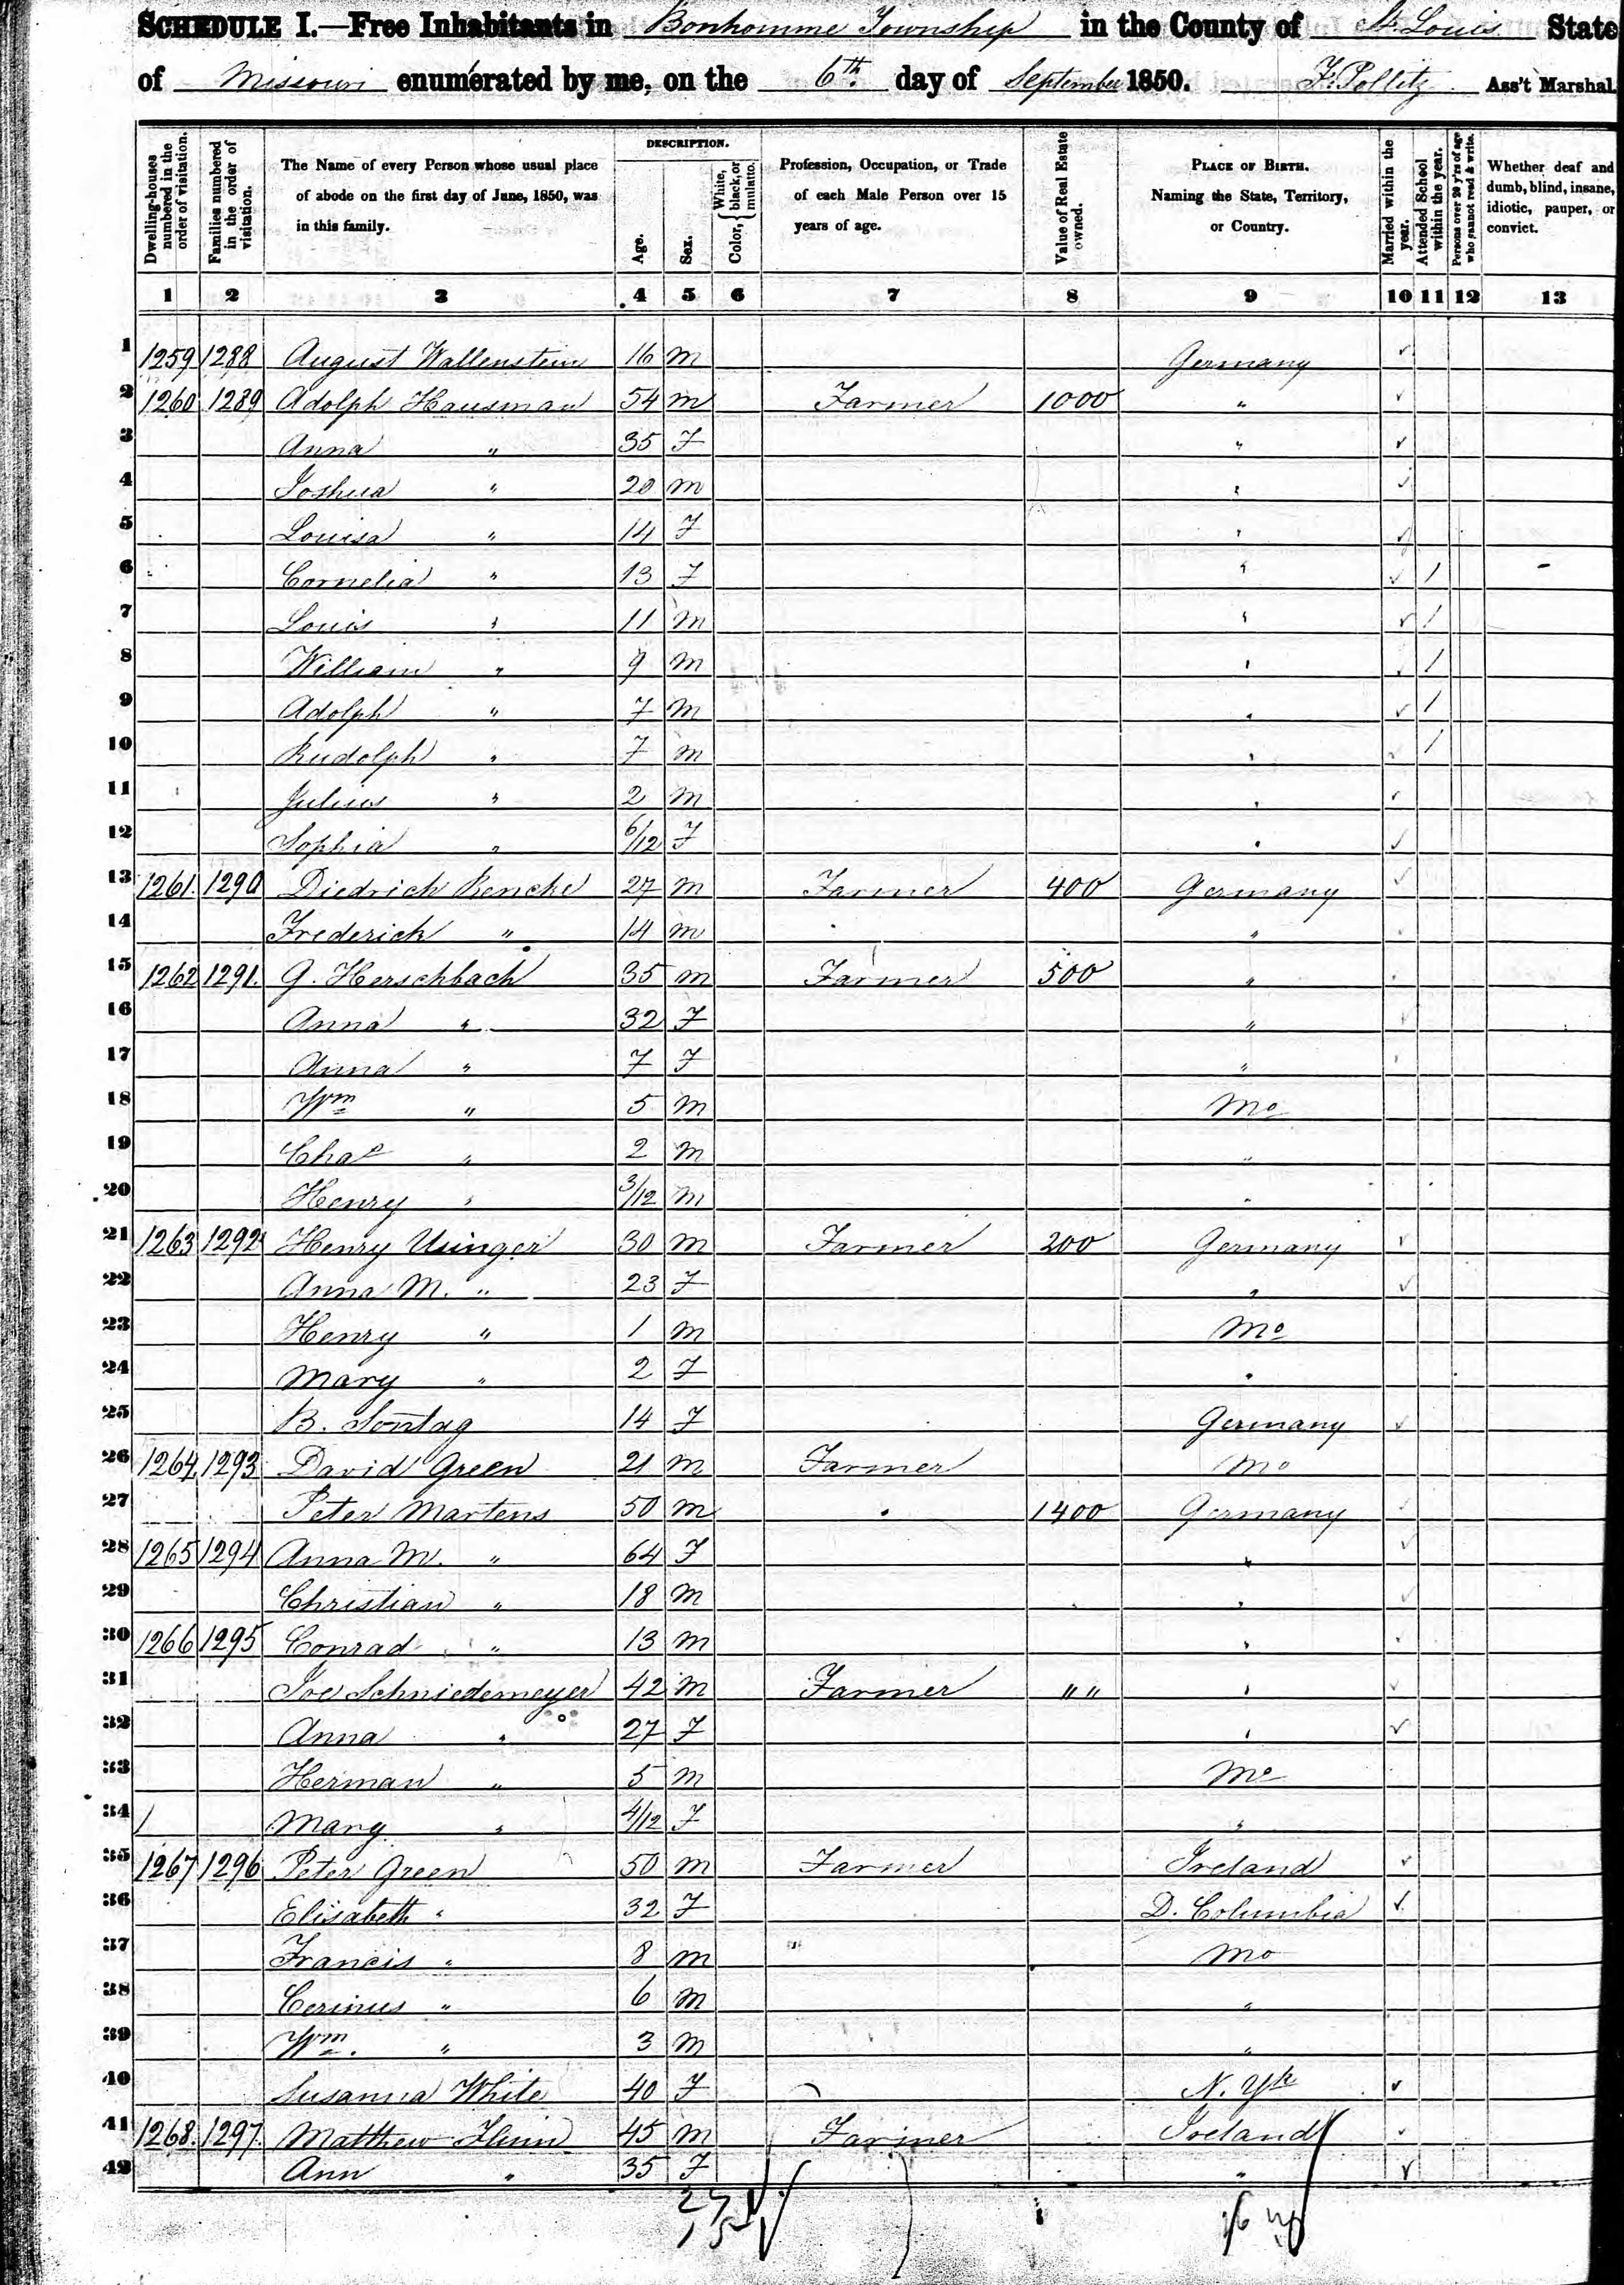 SCHEDULE I.—Free Inhabitants in Bonhomme Township in the County of St. Louis State
of Missouri enumerated by me, on the 6th day of September 1850. F. Pollitz Ass't Marshal.
Dwelling-houses numbered in the order of visitation.
Families numbered in the order of visitation.
The Name of every Person whose usual place of abode on the first day of June, 1850, was in this family.
DESCRIPTION.
Age.
Sex.
Color, { White, black, or mulatto.
Profession, Occupation, or Trade of each Male Person over 15 years of age.
Value of Real Estate owned.
PLACE OF BIRTH. Naming the State, Territory, or Country.
Married within the year.
Attended School within the year.
Persons over 20 y'rs of age who cannot read & write.
Whether deaf and dumb, blind, insane, idiotic, pauper, or convict.
1 2 3 4 5 6 7 8 9 10 11 12 13
1 1259 1288 August Wallenstein 16 m Germany ✓
2 1260 1289 Adolph Hausman 54 m Farmer 1000 " ✓
3 Anna " 35 F " ✓
4 Joshua " 20 m " ✓
5 Louisa " 14 F " ✓
6 Cornelia " 13 F " ✓ 1 -
7 Louis " 11 m " ✓ 1
8 William " 9 m " ✓ 1
9 Adolph " 7 m " ✓ 1
10 Rudolph " 7 m " ✓ 1
11 Julius " 2 m " ✓
12 Sophia " 6/12 F " ✓
13 1261. 1290 Diedrich Renche 27 m Farmer 400 Germany ✓
14 Frederich " 14 m "
15 1262 1291. G. Herschbach 35 m Farmer 500 "
16 Anna " 32 F " ✓
17 Anna " 7 F "
18 Wm " 5 m Mo
19 Chas " 2 m "
20 Henry " 3/12 m "
21 1263 1292 Henry Usinger 30 m Farmer 200 Germany ✓
22 Anna M. " 23 F " ✓
23 Henry " 1 m Mo
24 Mary " 2 F "
25 B. Sontag 14 F Germany ✓
26 1264 1293 David Green 21 m Farmer Mo
27 Peter Martens 50 m " 1400 Germany ✓
28 1265 1294 Anna M. " 64 F " ✓
29 Christian " 18 m " ✓
30 1266 1295 Conrad " 13 m " ✓
31 Joe Schniedemeyer 42 m Farmer "" " ✓
32 Anna " 27 F " ✓
33 Herman " 5 m Mo
34 Mary " 4/12 F "
35 1267 1296 Peter Green 50 m Farmer Ireland ✓
36 Elisabeth " 32 F D. Columbia ✓
37 Francis " 8 m Mo
38 Cerinus " 6 m "
39 Wm. " 3 m "
40 Susanna White 40 F N. Yk ✓
41 1268. 1297. Matthew Flinn 45 m Farmer Ireland ✓
42 Ann " 35 F " ✓
27
15